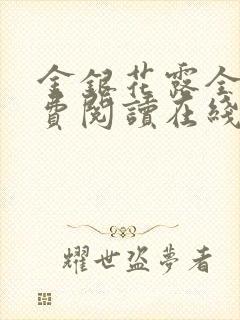 金銀花露全
費閱讀在綫
耀世盜夢者